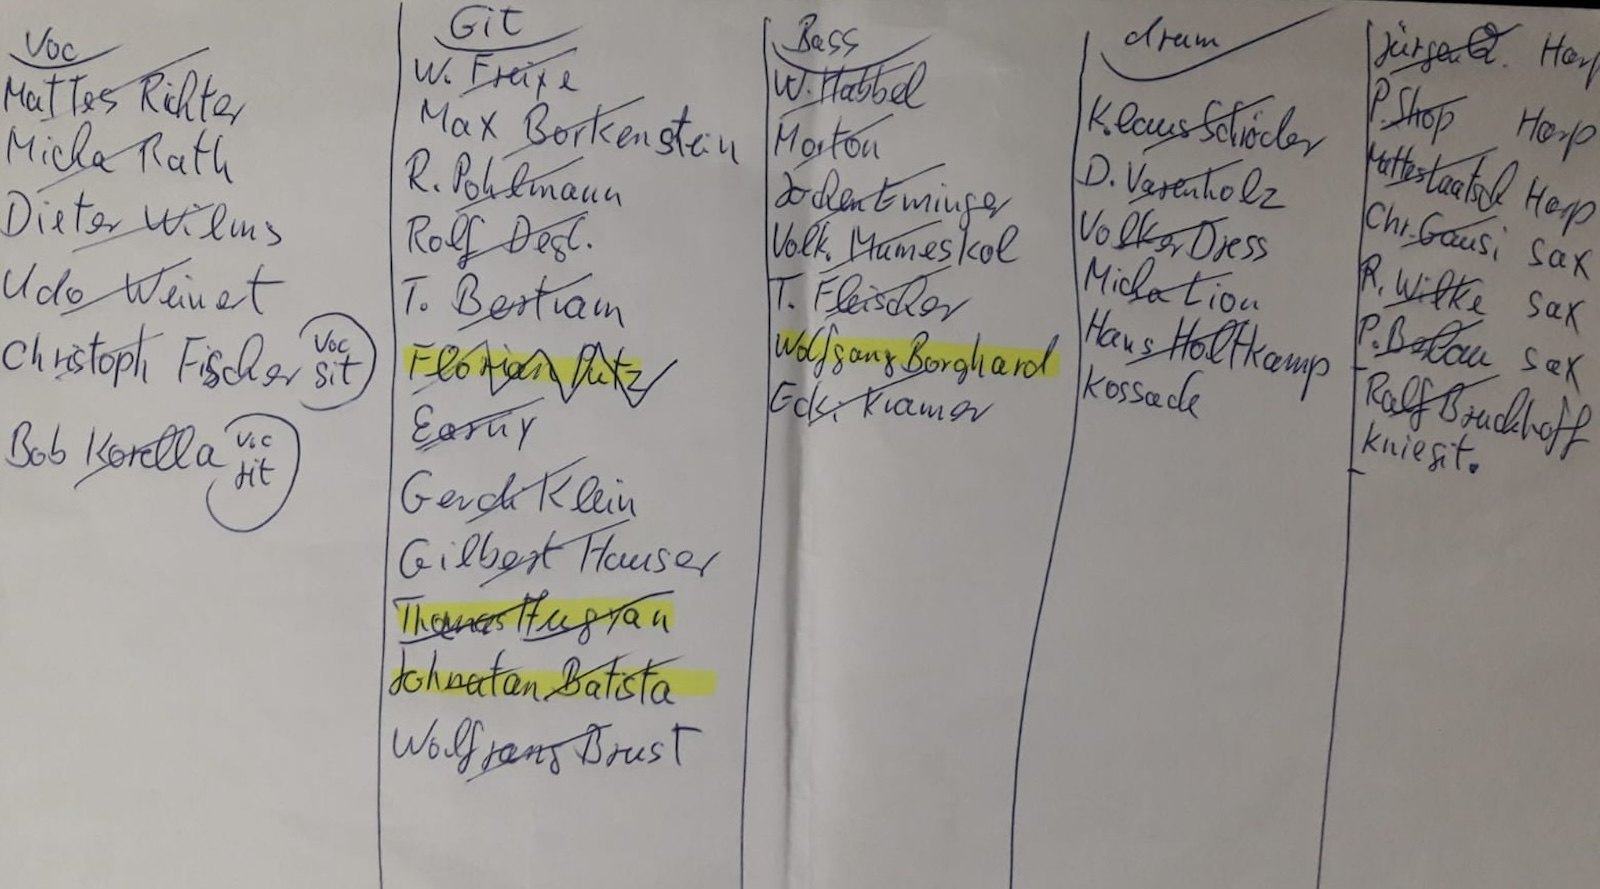 Voc
Mattes Richter
Micha Rath
Dieter Wilms
Udo Weinert
Christoph Fischer Voc Git
Bob Korella Voc Git
Git
W. Freixe
Max Borkenstein
R. Pohlmann
Rolf Degl.
T. Bertram
Florian Putz
Earny
Gerd Klein
Gilbert Hauser
Thomas
Johnatan Batista
Wolfgang Brust
Bass
W. Habbel
Morton
Jochen Eminger
Volk. Mumeskol
T. Fleischer
Wolfgang Borghard
Eck. Kramer
drum
Klaus Schröder
D. Varenholz
Volker Dress
Micha Lion
Hans Holtkamp
Kossack
Jürgen Q. Harp
P. Shop Harp
Mattes Harp
Chr. Gausi sax
R. Wilke sax
P. Belau sax
Ralf Bruckhoff
Kniegit.